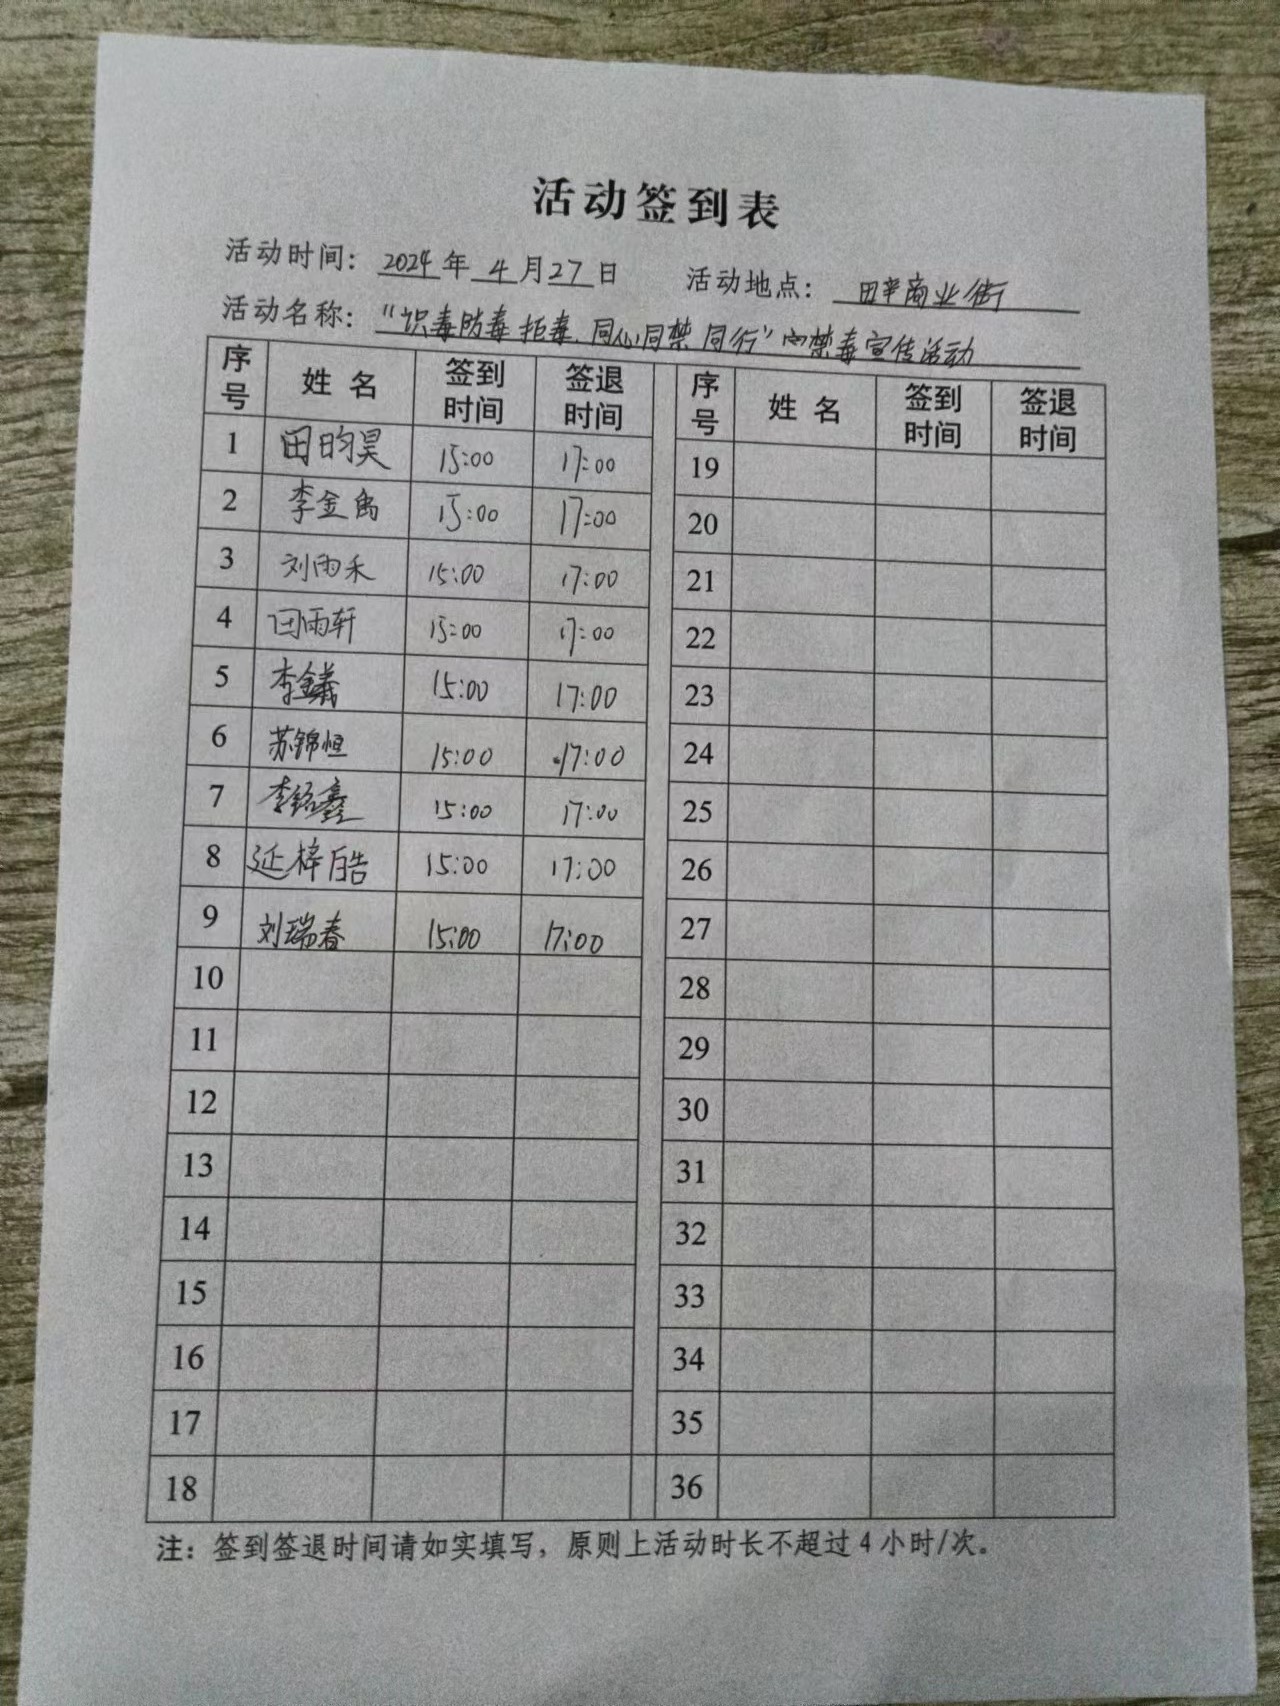 活动签到表
活动时间：2024年4月27日 活动地点：田辛商业街
活动名称：“识毒防毒拒毒、同心同禁同行”的禁毒宣传活动
序号 姓名 签到时间 签退时间 序号 姓名 签到时间 签退时间
1 田昀昊 15:00 17:00 19
2 李金禹 15:00 17:00 20
3 刘雨禾 15:00 17:00 21
4 田雨轩 15:00 17:00 22
5 李鑫 15:00 17:00 23
6 苏锦恒 15:00 17:00 24
7 李铭鑫 15:00 17:00 25
8 延梓皓 15:00 17:00 26
9 刘瑞春 15:00 17:00 27
10 28
11 29
12 30
13 31
14 32
15 33
16 34
17 35
18 36
注：签到签退时间请如实填写，原则上活动时长不超过4小时/次。